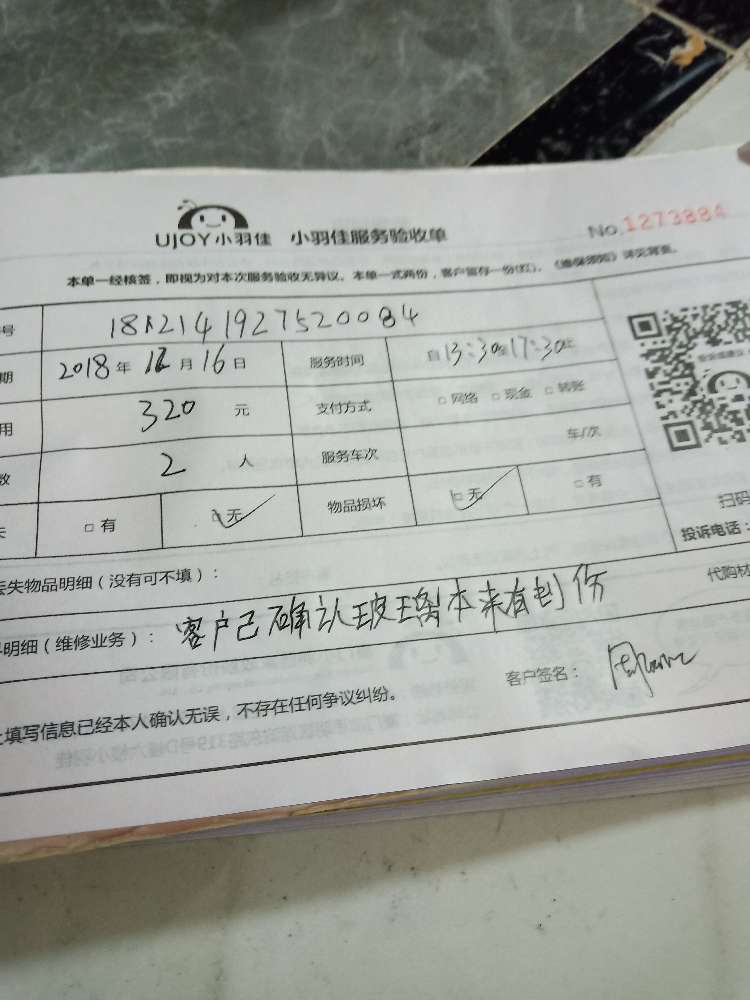 UJOY小羽佳 小羽佳服务验收单 No.1273884
本单一经核签，即视为对本次服务验收无异议。本单一式两份，客户留存一份(红)。《维保须知》详见背面。
号 1812141927520084
期 2018年12月16日 服务时间 自13:30至17:30止
用 320元 支付方式 □网络 □现金 □转账
数 2人 服务车次 车/次
失 □有 □无 物品损坏 □无 □有
丢失物品明细（没有可不填）：
明细（维修业务）：客户己确认玻璃本来有刮伤
客户签名：
上填写信息已经本人确认无误，不存在任何争议纠纷。
扫码
投诉电话：
代购材